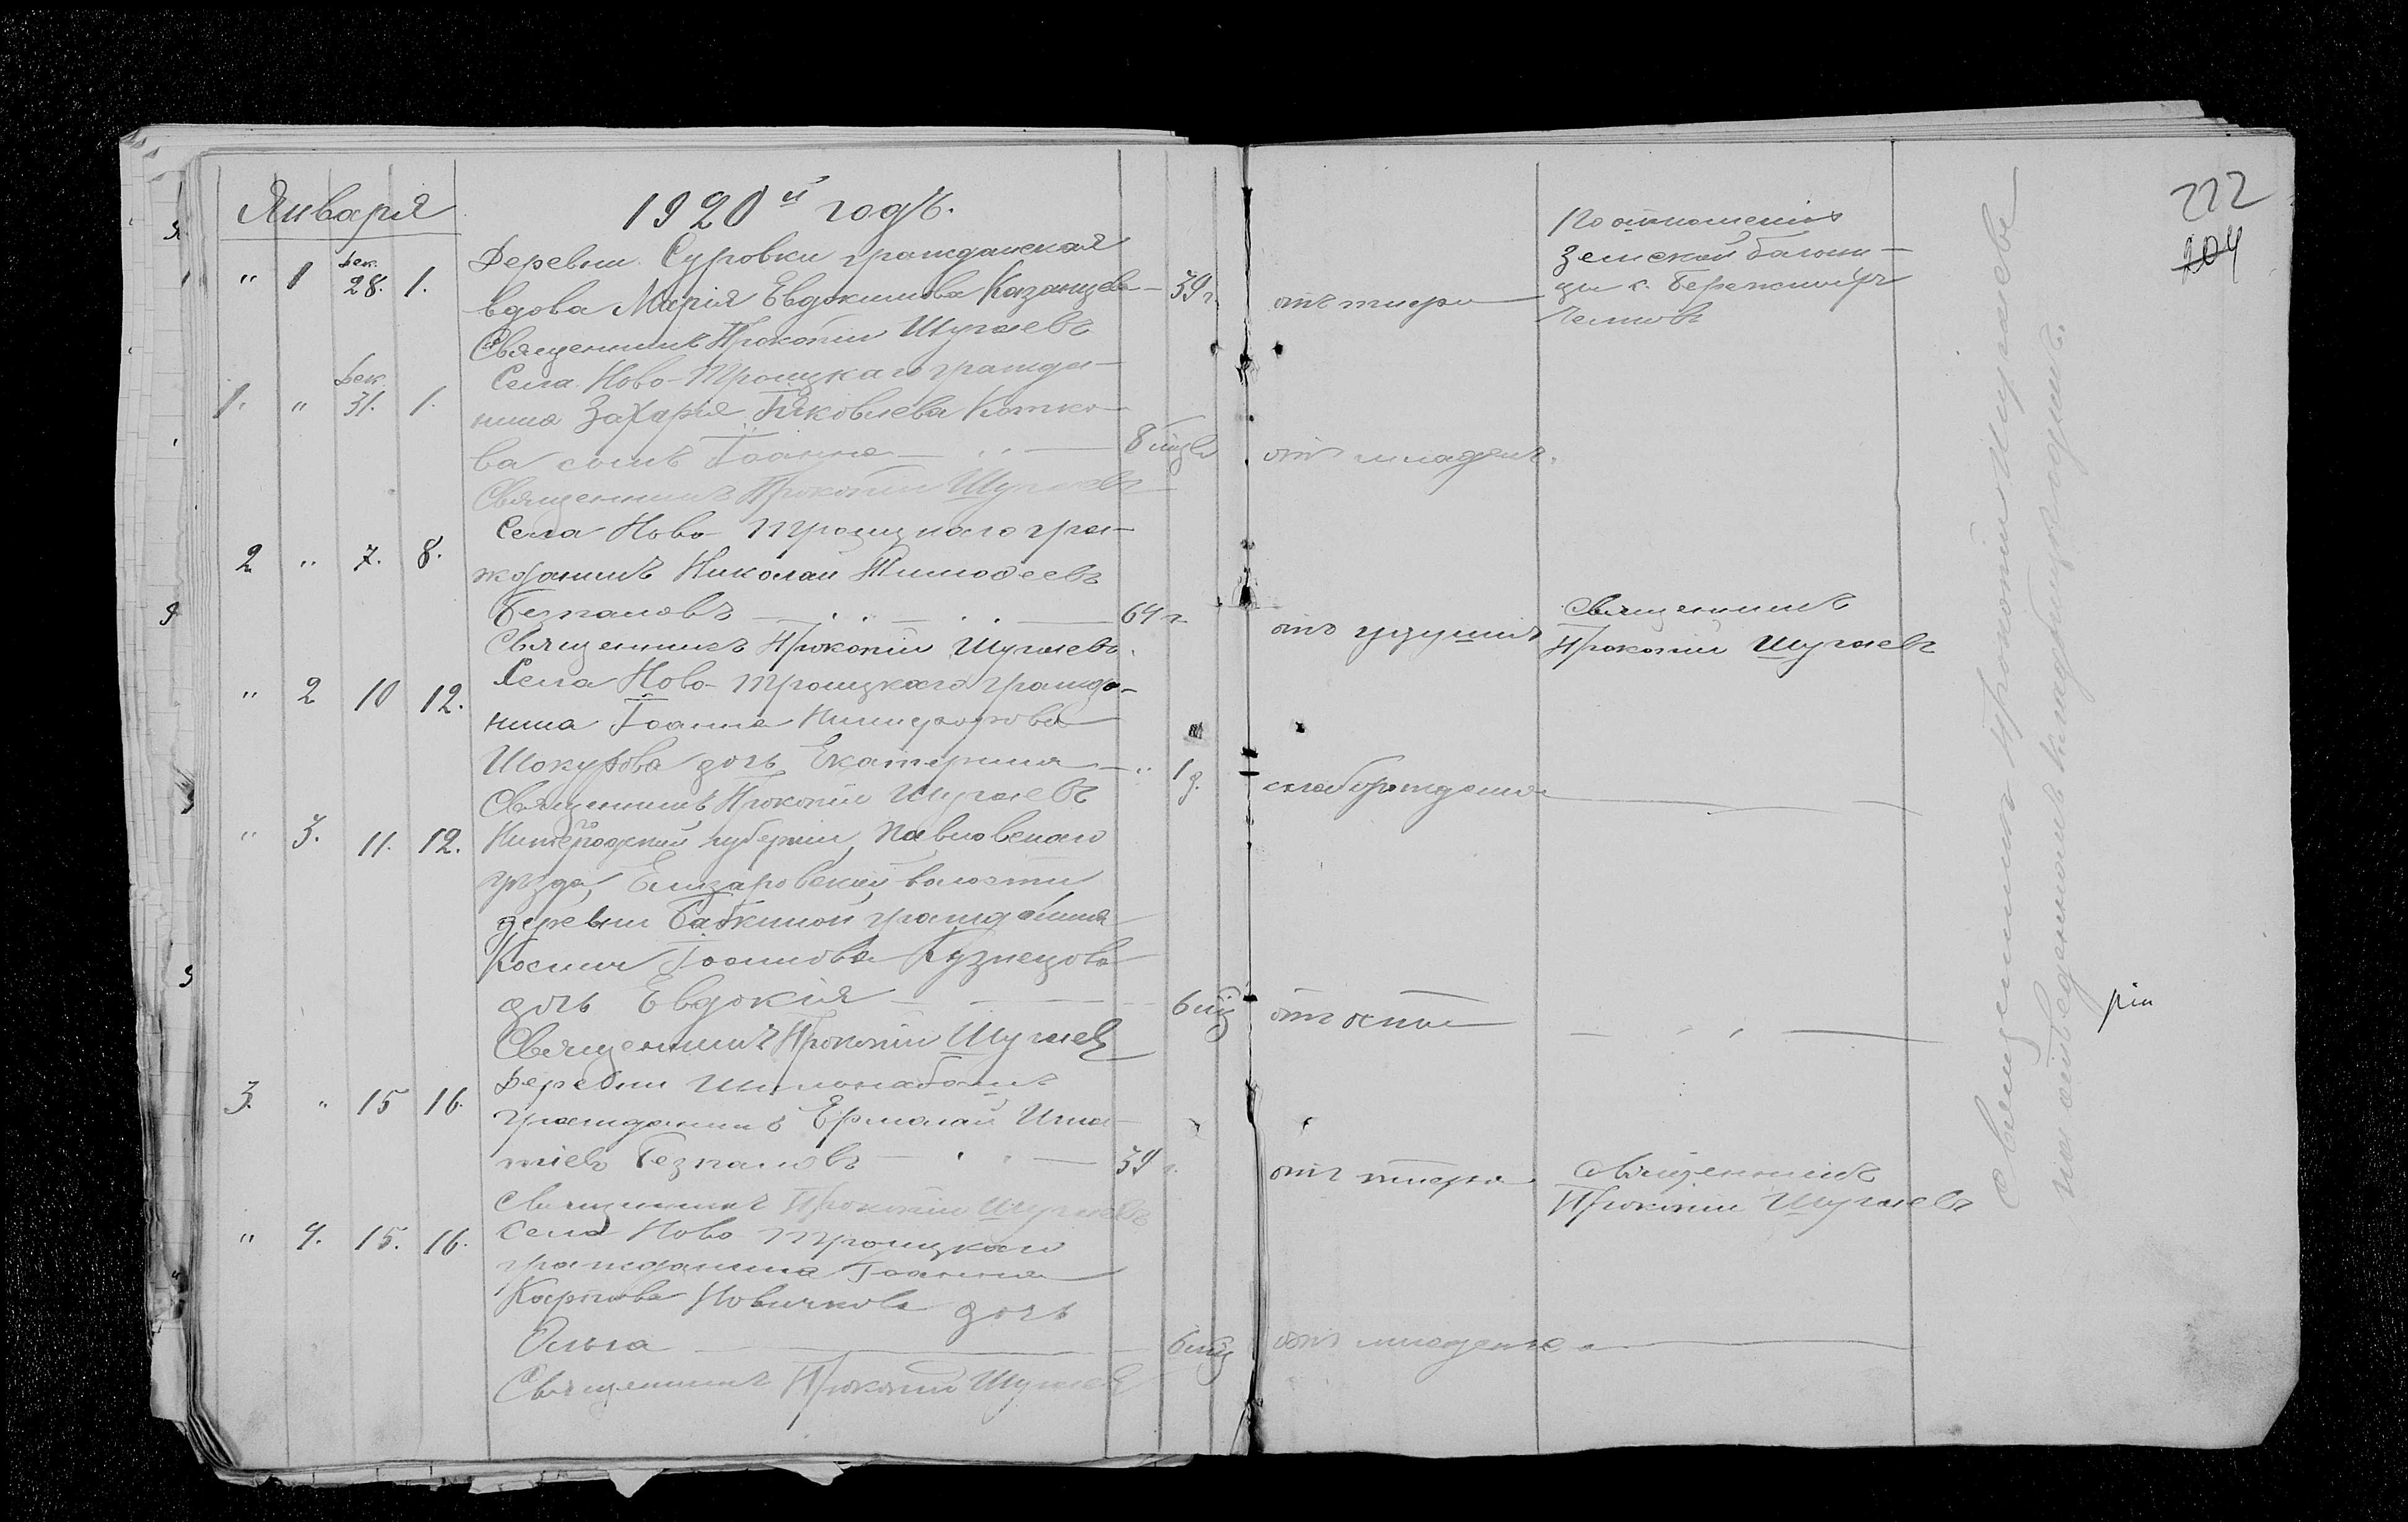 Января
1920й годъ.
" 1 Дек. 28. 1. Деревни Суровки гражданская
вдова Марія Евдокимова Казанцева — 39 г. отъ тифа
По отношенію
земской больни-
цы с.
Священникъ Прокопій Шугаевъ
1. " Дек. 31. 1. Села Ново-Троицкаго гражда-
нина Захарія Яковлева Котко-
ва сынъ Іоаннъ — 8 мцв отъ младенч.
Священникъ Прокопій Шугаевъ
2 " 7. 8. Села Ново Троицкаго гра-
жданинъ Николай Тимофеевъ
Безпаловъ — 64 г. отъ удушія
Священникъ
Прокопій Шугаевъ
Священникъ Прокопій Шугаевъ.
" 2 10 12. Села Ново-Троицкаго гражда-
нина Іоанна Никифорова
Шокурова дочь Екатерина — " 1 д. слаборожденія
Священникъ Прокопій Шугаевъ
" 3. 11. 12. Нижегородской губерніи, Павловскаго
уѣзда, Елизаровской волости
деревни Бабкиной гражданина
Косьмы Іоаннова Кузнецова
дочь Евдокія — 6 мц отъ оспы
Священникъ Прокопій Шугаевъ
3. " 15 16. Деревни
гражданинъ Ермолай Игна-
тіевъ Безпаловъ — 39 г. отъ тифа
Священникъ
Прокопій Шугаевъ
Священникъ Прокопій Шугаевъ
" 4. 15. 16. Села Ново Троицкаго
гражданина Іоанна
Карпова Новичкова дочь
Ольга — 6 мц отъ младенч
Священникъ Прокопій Шугаевъ
Священникъ Прокопій Шугаевъ
на отведенномъ кладбищѣ
222
204